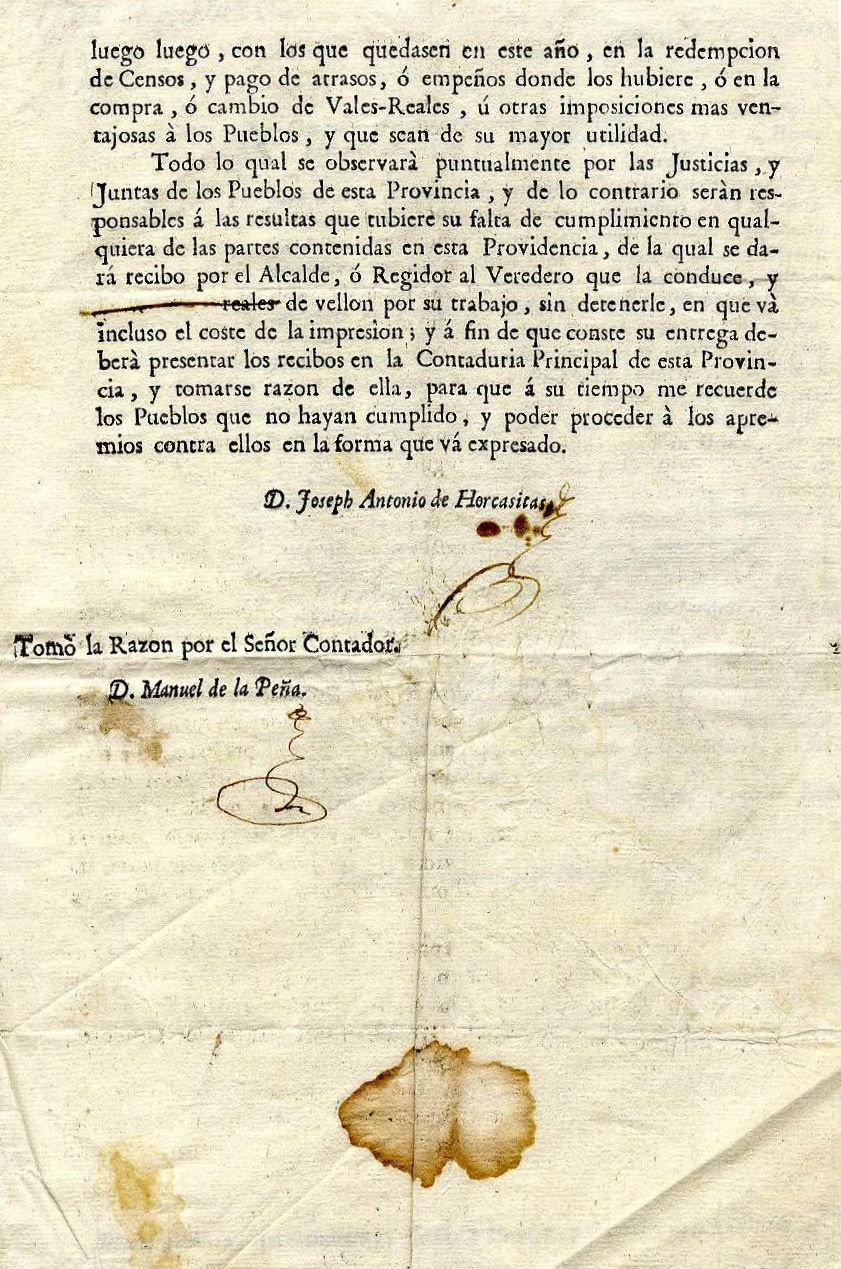 luego luego , con los que quedasen en este año , en la redempcion
de Censos , y pago de atrasos, ó empeños donde los hubiere , ó en la
compra , ó cambio de Vales-Reales , ú otras imposiciones mas ven-
tajosas à los Pueblos , y que sean de su mayor utilidad.
Todo lo qual se observarà puntualmente por las Justicias , y
Juntas de los Pueblos de esta Provincia , y de lo contrario seràn res-
ponsables á las resultas que tubiere su falta de cumplimiento en qual-
quiera de las partes contenidas en esta Providencia, de la qual se da-
rá recibo por el Alcalde, ó Regidor al Veredero que la conduce, y
reales de vellon por su trabajo, sin detenerle, en que và
incluso el coste de la impresion; y á fin de que conste su entrega de-
berà presentar los recibos en la Contaduria Principal de esta Provin-
cia , y tomarse razon de ella, para que á su tiempo me recuerde
los Pueblos que no hayan cumplido, y poder proceder à los apre-
mios contra ellos en la forma que vá expresado.
D. Joseph Antonio de Horcasitas.
Tomò la Razon por el Señor Contador.
D. Manuel de la Peña.